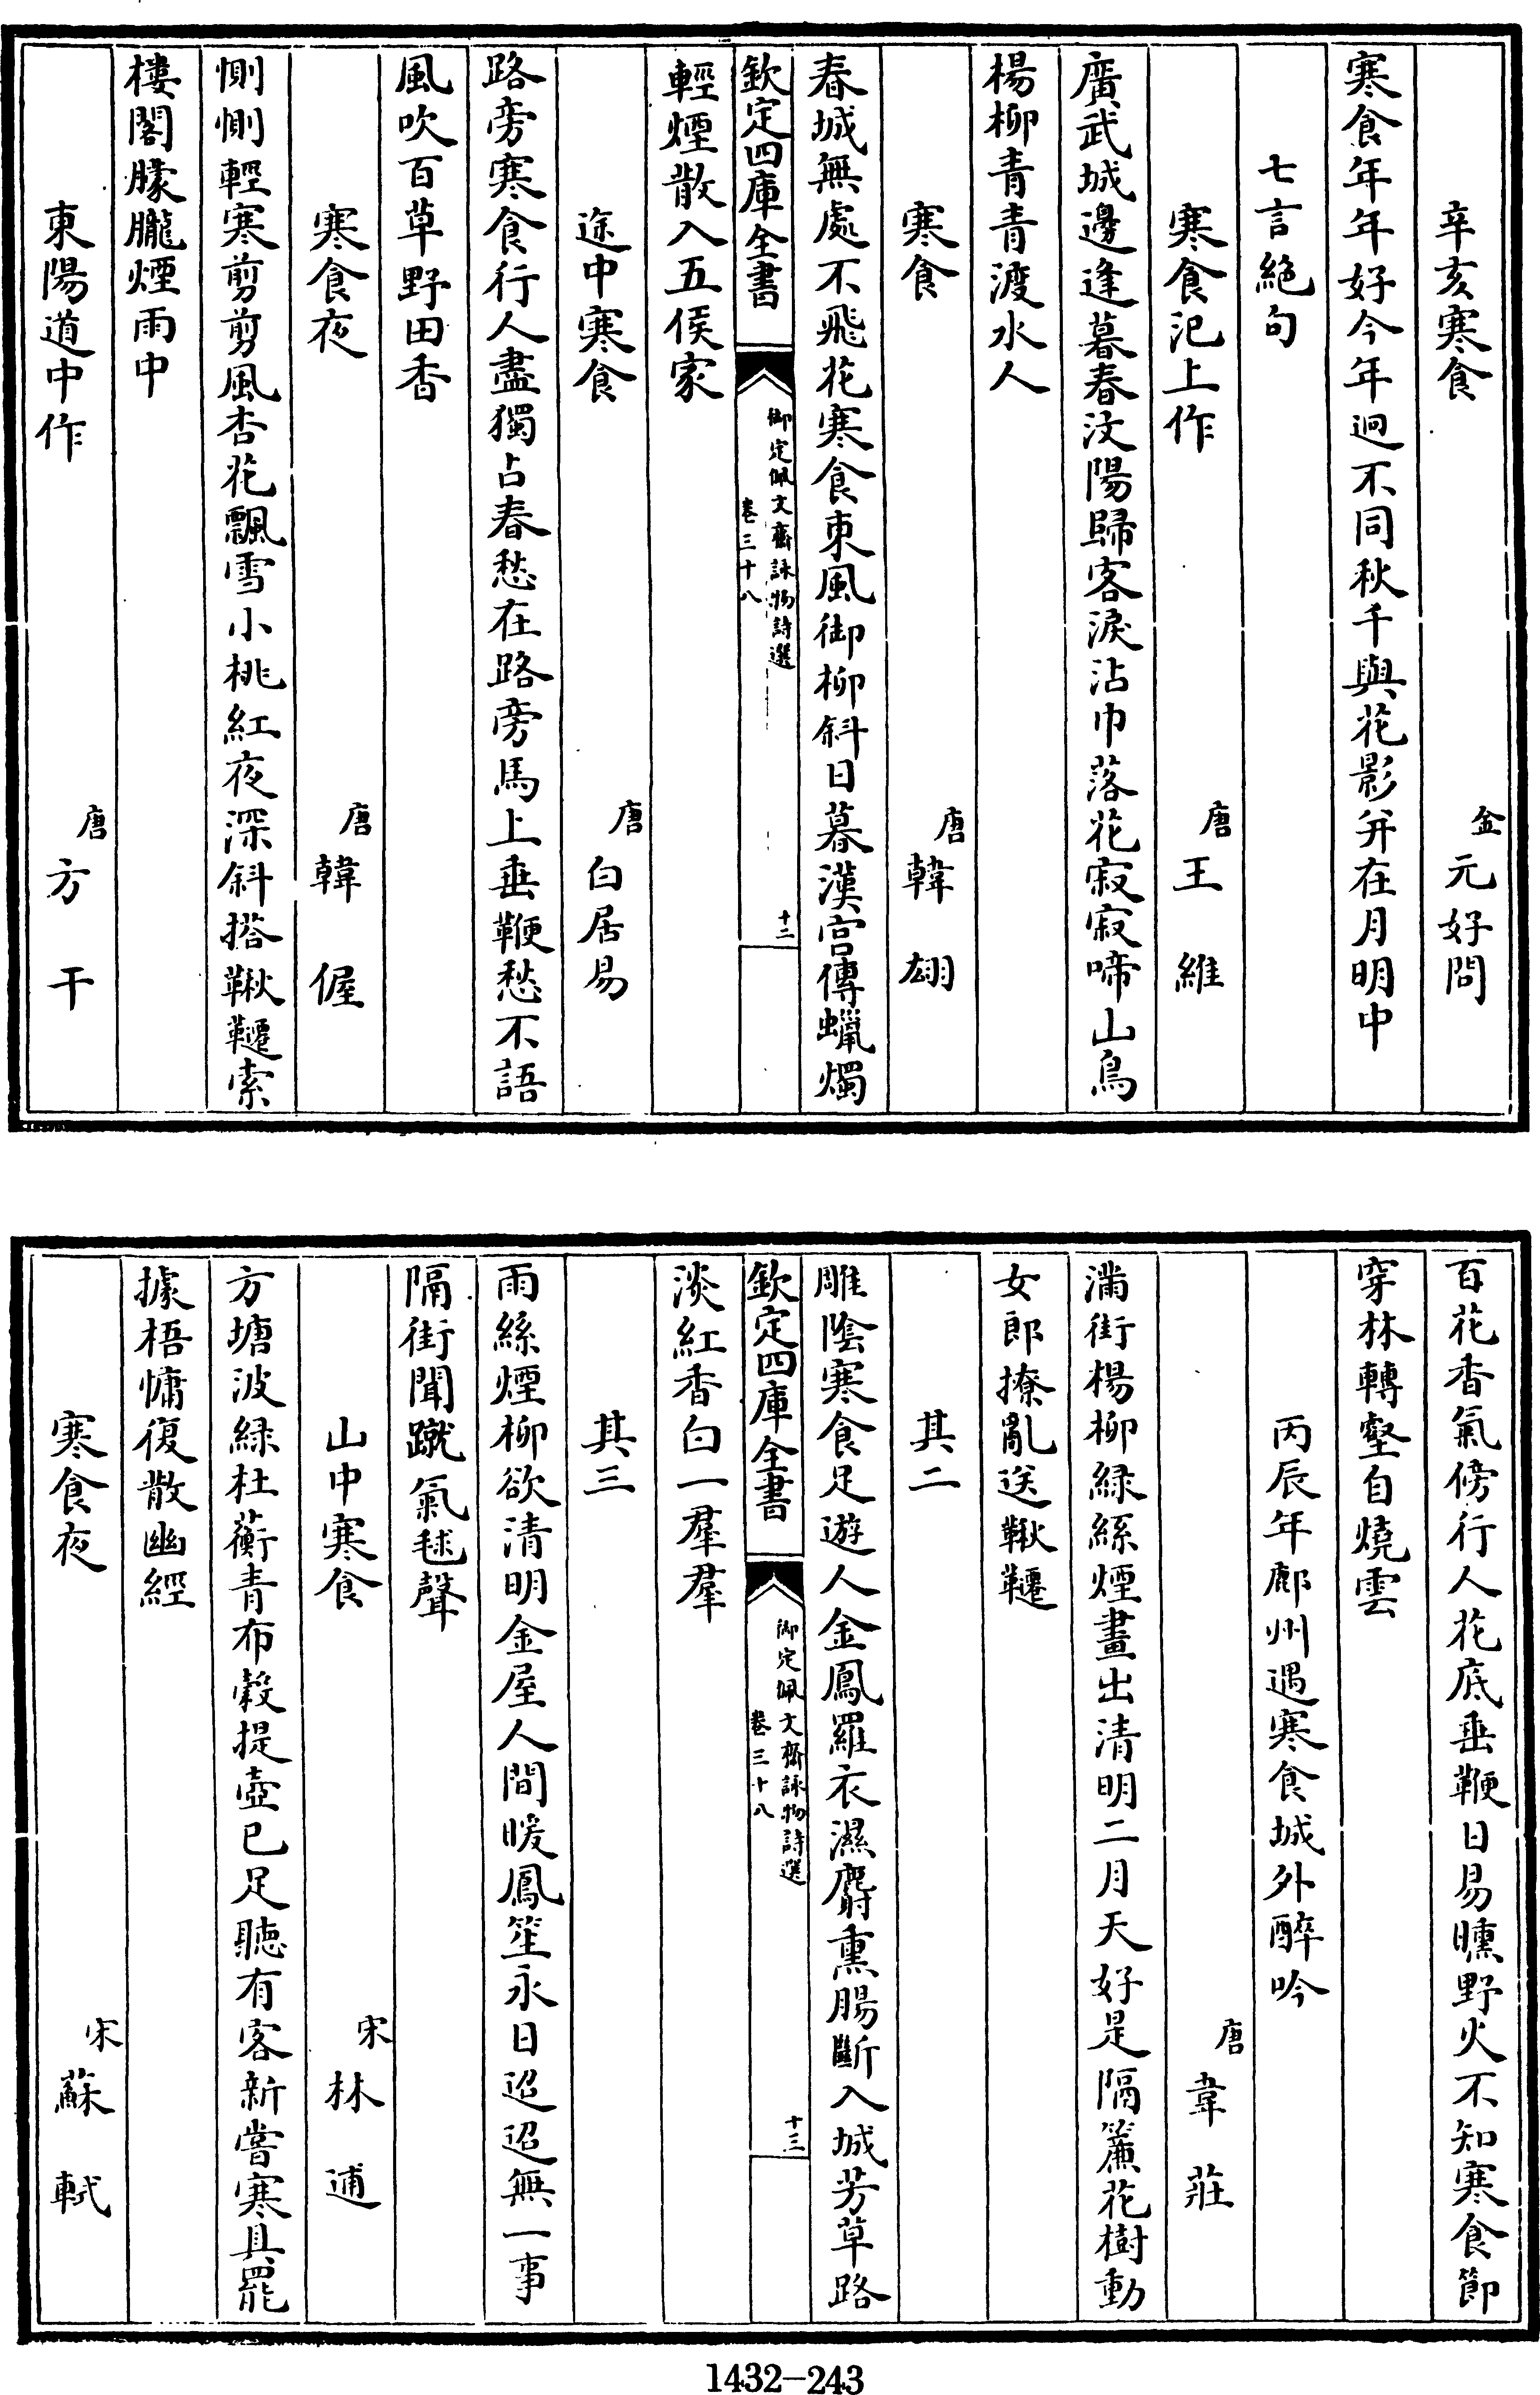 辛亥寒食
金　元好問
寒食年年好今年迥不同秋千與花影并在月明中
七言絕句
寒食汜上作
唐　王維
廣武城邊逢暮春汶陽歸客淚沾巾落花寂寂啼山鳥
楊柳青青渡水人
寒食
唐　韓翃
春城無處不飛花寒食東風御柳斜日暮漢宮傳蠟燭
欽定四庫全書
御定佩文齋詠物詩選
卷三十八
十二
輕煙散入五侯家
途中寒食
唐　白居易
路旁寒食行人盡獨占春愁在路旁馬上垂鞭愁不語
風吹百草野田香
寒食夜
唐　韓偓
惻惻輕寒剪剪風杏花飄雪小桃紅夜深斜搭鞦韆索
樓閣朦朧煙雨中
東陽道中作
唐　方干
百花香氣傍行人花底垂鞭日易曛野火不知寒食節
穿林轉壑自燒雲
丙辰年鄜州遇寒食城外醉吟
唐　韋莊
滿街楊柳綠絲煙畫出清明二月天好是隔簾花樹動
女郎撩亂送鞦韆
其二
雕陰寒食足遊人金鳳羅衣濕麝熏腸斷入城芳草路
欽定四庫全書
御定佩文齋詠物詩選
卷三十八
十三
淡紅香白一羣羣
其三
雨絲煙柳欲清明金屋人間暖鳳笙永日迢迢無一事
隔街聞蹴氣毬聲
山中寒食
宋　林逋
方塘波綠杜蘅青布穀提壺已足聽有客新嘗寒具罷
據梧慵復散幽經
寒食夜
宋　蘇軾
1432-243